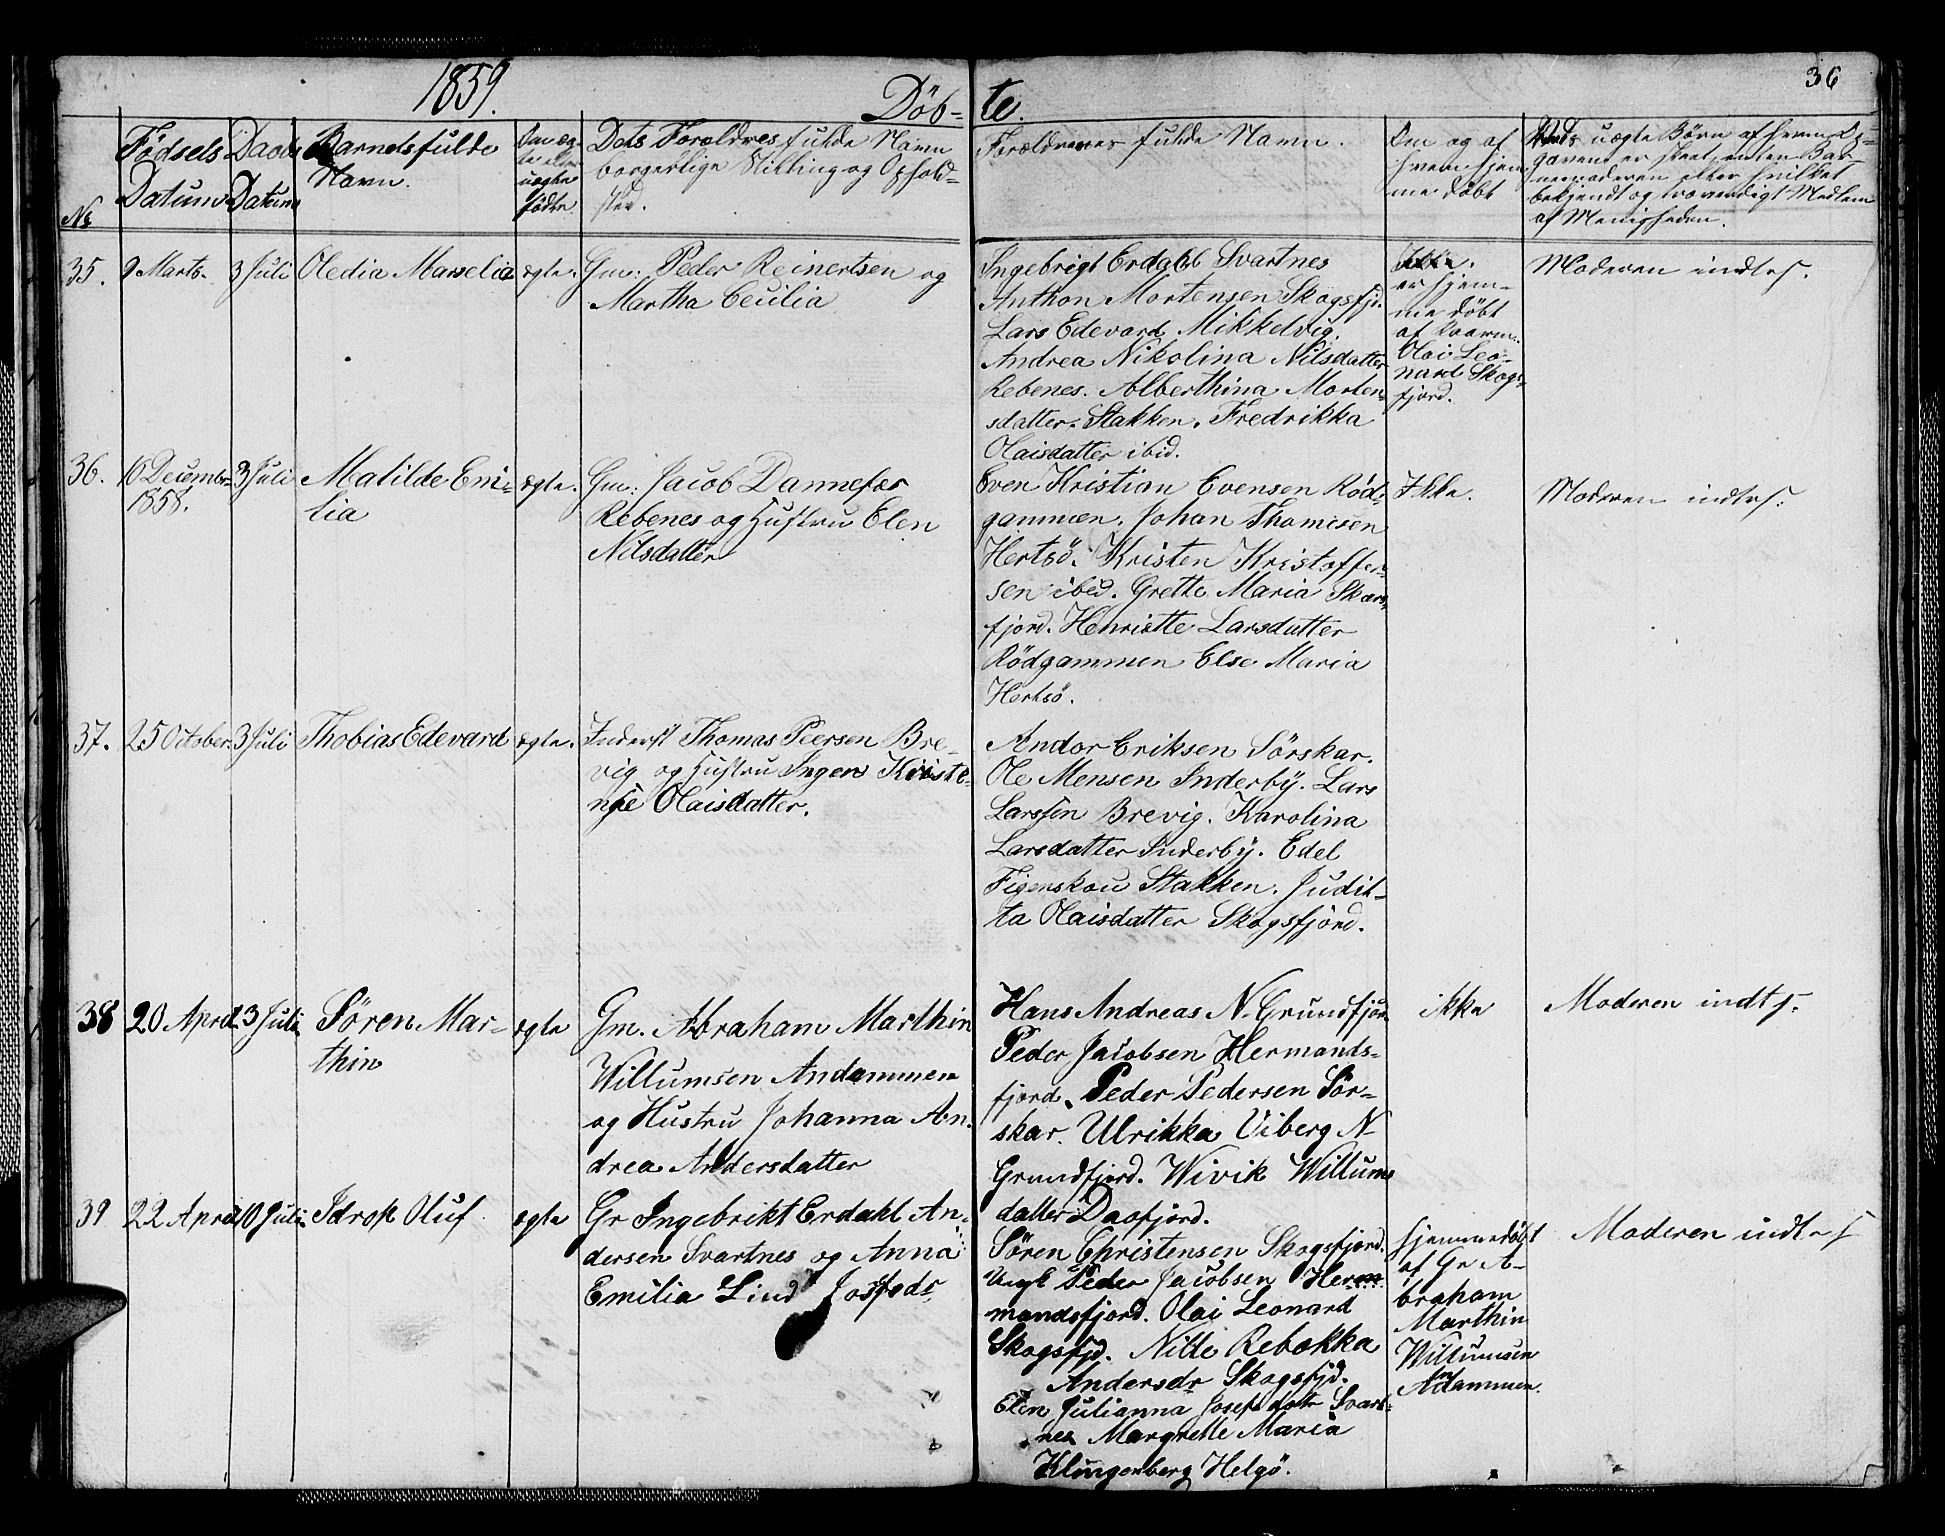 1859.
Döb-
te.
36
No
Fødsels
Datum
Daabs
Datum
Barnets fulde
Navn.
Om æg-
te eller
uægte
födte.
Dets Forældres fulde Navn
borgerlige Stilling og Ophold-
sted.
Forældrenes fulde Navn.
Om og af
hvem hjem-
me döbt
Ved uægte Börn af hvem Op-
gaven er skeet, enten Bar-
nemoderen eller hvilket
bekjendt og troværdigt Medlem
af Menigheden.
35.
9 Marts.
3 Juli
Oledia Marselia
ægte.
Gm: Peder Reinertsen og
Martha Cecilia
Ingebrigt Erdahl Svartnes
Anthon Mortensen Skogsfj.
Lars Edevard Mikkelvig.
Andrea Nikolina Nilsdatter
Rebenes. Alberthina Morten-
sdatter. Stakken. Fredrikka
Olaisdatter ibid.
er hjem-
me döbt
af
Olai Leo-
nard Skogs-
fjord.
Moderen indtr.
36.
10 Decembr-
1858.
3 Juli
Matilde Emi-
lia
ægte.
Gm: Jacob Dannefær
Rebenes og Hustru Elen
Nilsdatter
Even Kristian Evensen Röd-
gammen. Johan Thomesen
Hertsö. Kristen Kristoffer-
sen ibid. Grette Maria Skars-
fjord. Henriette Larsdatter
Rödgammen Else Maria
Hertsö.
Ikke.
Moderen indtr.
37.
25 October
3 Juli
Thobias Edevard
ægte.
Inderst Thomas Peersen Bre-
vig og Hustru Ingen Kriste-
nse Olaisdatter.
Andor Eriksen Sörskar.
Ole Mensen Inderby. Lars
Larssen Brevig. Karolina
Larsdatter Inderby. Edel
Figenskou Stakken. Judit-
ta Olaisdatter Skogsfjord.
38
20 April
3 Juli
Sören Mar-
thin
ægte
Gm. Abraham Marthin
Willumsen Andammen
og Hustru Johanna An-
drea Andersdatter
Hans Andreas N. Grundfjor
Peder Jacobsen Hermands-
fjord. Peder Pedersen Sör-
skar. Ulrikka Viberg N-
Grundfjord. Wivik Willums
datter Daafjord.
ikke
Moderen indtr.
39
22 April
10 Juli
Idrop Oluf
ægte
Gr Ingebrikt Erdahl An-
dersen Svartnes og Anna
Emilia Lind Josefsdr
Sören Christensen Skogsfjord.
Ungk Peder Jacobsen Herm
mandsfjord. Olai Leonard
Skogsfjd. Nille Rebekka
Andersdr Skogsfjd.
Elen Julianna Josefsdatr Svart-
nes Margrette Maria
Klingenberg Helgö.
hjemmedöbt
af Gr A-
braham
Marthin
Willumsen
Adammen.
Moderen indtr